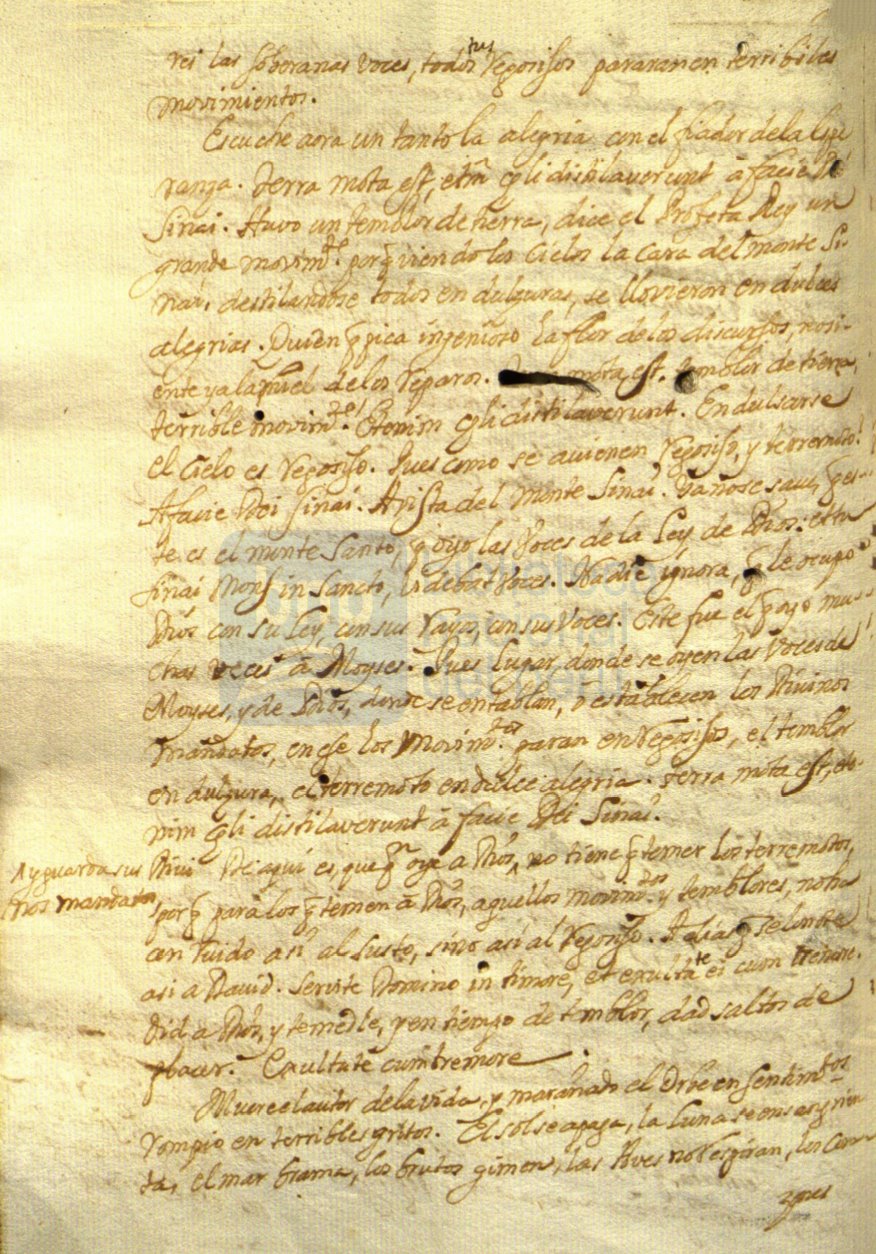 reis las soberanas voces, todos tus regosijos pararan en terribiles
movimientos.
Escuche aora un tanto la alegria con el fiador de la espe
ranza. Terra mota est, etm çli distilaverunt à facie Dei
Sinai. Huvo un temblor de tierra, dice el Profeta Rey un
grande movimto. porq̃ viendo los Cielos la cara del monte Si-
nai, destilandose todos en dulzuras, se llovieron en dulces
alegrias. Quien q̃ pica ingenioso la flor de los discursos, no si-
ente ya la miel de los reparos. mota est. temblor de tierra,
terrible movimto. Etenim çli distilaverunt. Endulsarse
el Cielo es regosijo. Pues como se avienen regosijo, y terremoto?
A facie Dei Sinai. A vista del monte Sinai. Ya no se save, q̃ es-
te es el monte Santo, q̃ oyo las voces de la Ley de Dios.
Sinai Mons in Sancto, debat voces. Nadie ignora, q̃ le ocupo
Dios con su Ley, con sus rayos, con sus voces. Este fue el poyo mu-
chas veces à Moyses. Pues lugar, donde se oyen las voces de
Moyses, y de Dios, donde se entablan, o establesen los Divinos
mandatos, en ese los movimtos. paran en regosijos, el temblor
en dulzura, el terremoto en dulce alegria. Terra mota est, ete-
nim çli distilaverunt à facie Dei Sinai.
Ay guarda sus Divi
nos mandatos
De aqui es, que qn. oye a Dios, no tiene q̃ temer los terremotos,
porq̃ para los q̃ temen à Dios, aquellos movimtos. y temblores, no ha
cen ruido asi al susto, sino asi al regosijo. A q̃ se
asi a David. Servite Domino in timore, et exultate ei cum tremore.
a Dios, y temedle, y en tiempo de temblor, dad saltos de
placer. Exultate cum tremore.
Muere el autor de la vida, y marañado el Orbe en sentimtos.
rompio en terribles gritos. El sol se apaga, la luna se ensangrien
ta, el mar brama, los brutos gimen, las Aves no respiran, los